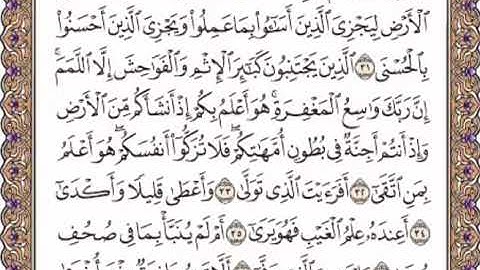 ٱلْأَرْضِ لِيَجْزِىَ ٱلَّذِينَ أَسَٰٓـُٔوا۟ بِمَا عَمِلُوا۟ وَيَجْزِىَ ٱلَّذِينَ أَحْسَنُوا۟
بِٱلْحُسْنَى ٣١ ٱلَّذِينَ يَجْتَنِبُونَ كَبَٰٓئِرَ ٱلْإِثْمِ وَٱلْفَوَٰحِشَ إِلَّا ٱللَّمَمَ ۚ
إِنَّ رَبَّكَ وَٰسِعُ ٱلْمَغْفِرَةِ ۚ هُوَ أَعْلَمُ بِكُمْ إِذْ أَنشَأَكُم مِّنَ ٱلْأَرْضِ
وَإِذْ أَنتُمْ أَجِنَّةٌ فِى بُطُونِ أُمَّهَٰتِكُمْ ۖ فَلَا تُزَكُّوٓا۟ أَنفُسَكُمْ ۖ هُوَ أَعْلَمُ
بِمَنِ ٱتَّقَىٰٓ ٣٢ أَفَرَءَيْتَ ٱلَّذِى تَوَلَّىٰ ٣٣ وَأَعْطَىٰ قَلِيلًا وَأَكْدَىٰٓ
٣٤ أَعِندَهُۥ عِلْمُ ٱلْغَيْبِ فَهُوَ يَرَىٰٓ ٣٥ أَمْ لَمْ يُنَبَّأْ بِمَا فِى صُحُفِ